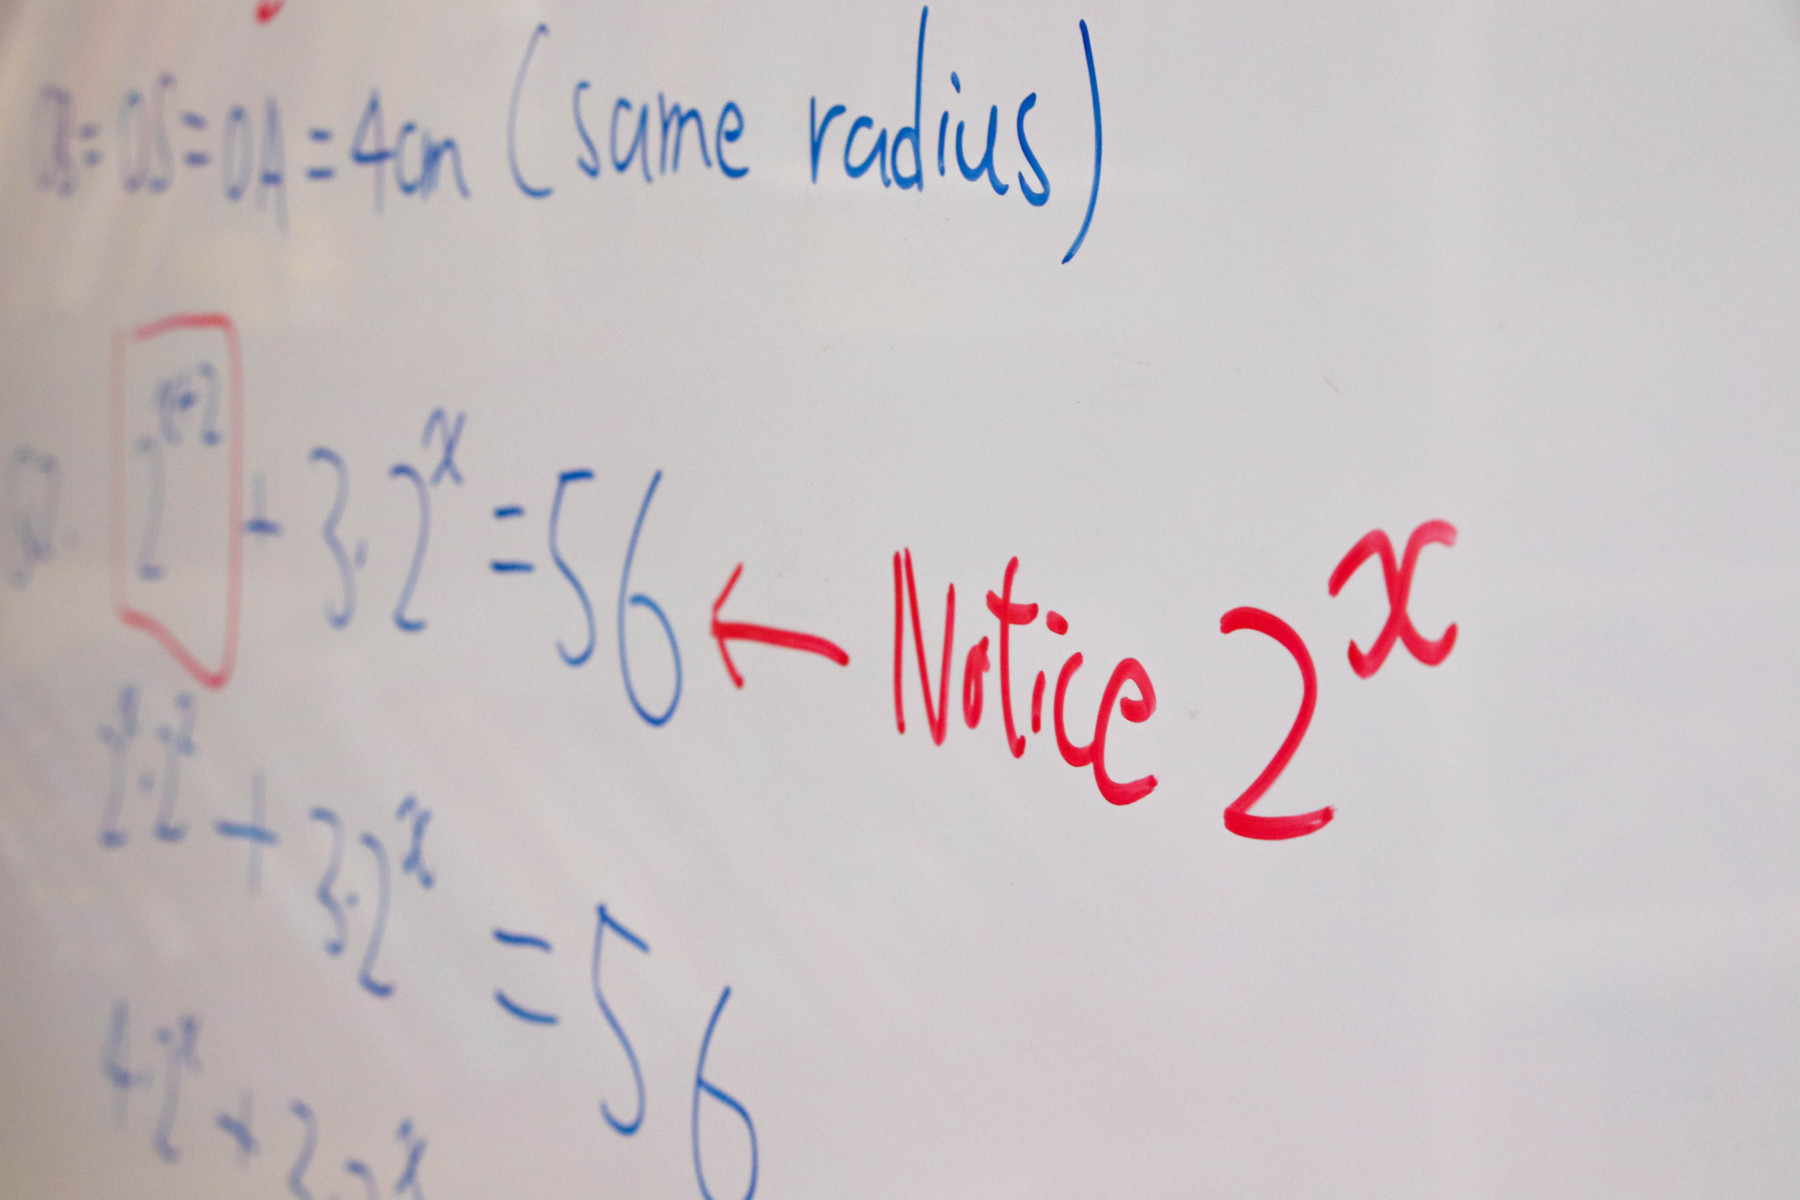 OB=OS=OA=4cm (same radius)
Q. 2^{x+2} + 3·2^x = 56 ← Notice 2^x
2^x·2^2 + 3·2^x = 56
4·2^x + 3·2^x